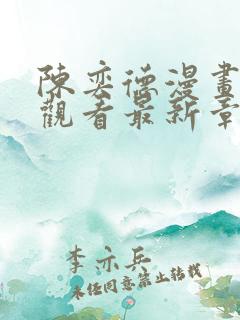 陳奕德漫畫
觀看最新章
李亦兵
未经同意禁止转载